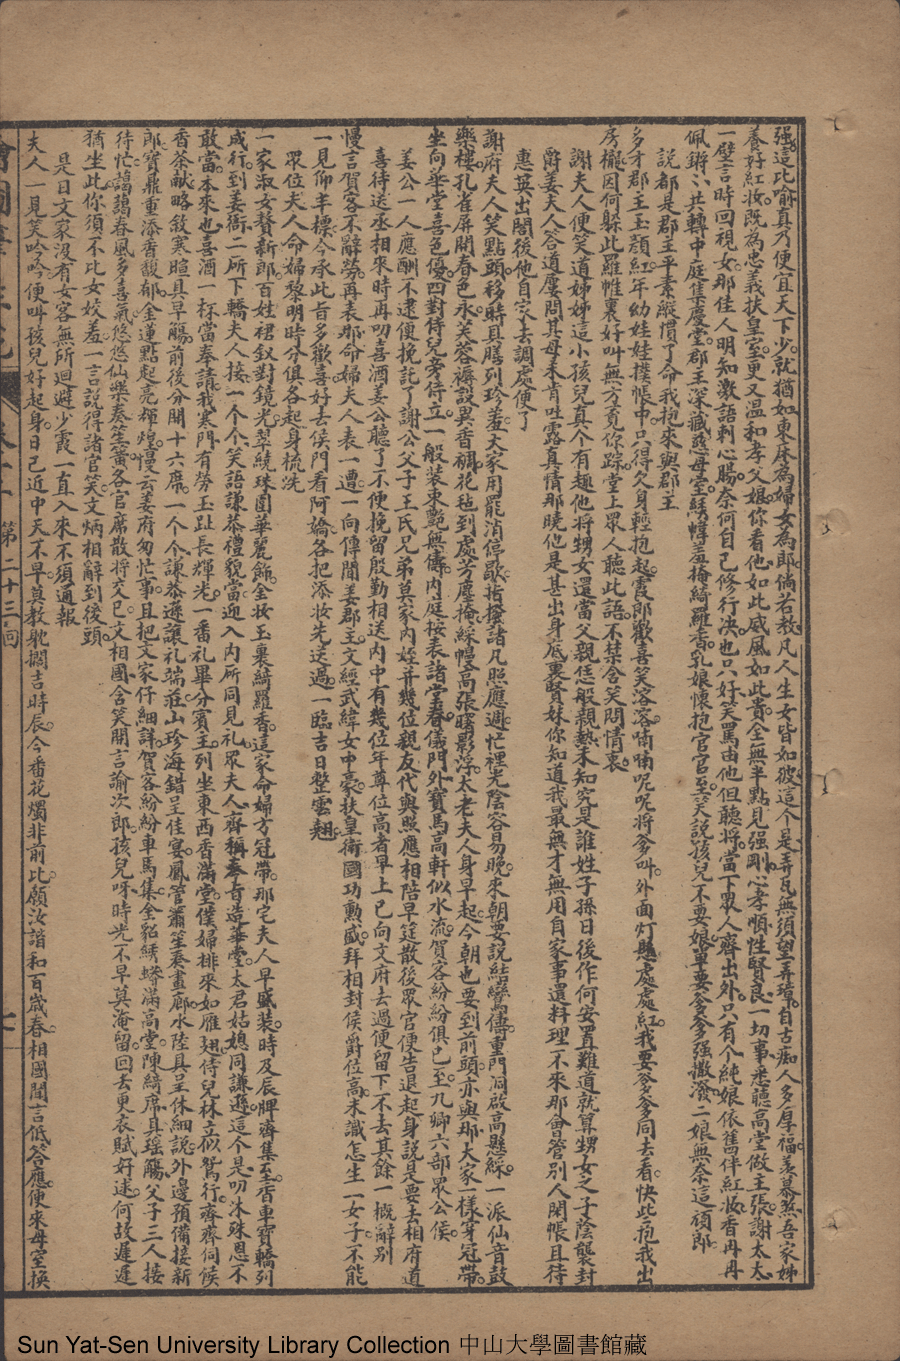 强這比喻真乃便宜天下少就猶如東床為婦女為郎倘若教凡人生女皆如彼這个是弄瓦無須望弄璋自古痴人多厚福羨慕煞吾家姊
養好紅妝既為忠義扶皇室更又溫和孝父娘你看他如此威風如此貴全無半點見强剛心孝順性賢良一切事悉聽高堂做主張謝太太
一壁言時回視女那佳人明知激語刺心腸奈何自己修行决也只好笑罵由他但聽將當下眾人齊出外只有个純娘依舊伴紅妝香冉冉
佩鏘鏘共轉中庭集慶堂郡王深藏惑母堂綉幃羞掩綺羅香乳娘懷抱官官至笑說孩兒不要娘單要爹爹多強撒潑二娘無奈這頑郎
說都是郡主平素縱慣了命我抱來與郡主
多才郡主玉顏紅年幼娃娃撲帳中只得欠身輕抱起霞郎歡喜笑溶溶喃喃呢呢將爹叫外面灯懸處處紅我要爹爹多同去看快此抱我出
房櫳因何躲此羅帷裏好叫無方覓你踪堂上眾人聽此語不禁含笑問情衷
謝夫人便笑道姊姊這小孩兒真个有趣他將甥女還當父親恁般親熱未知究是誰姓子孫日後作何安置難道就算甥女之子蔭襲封
爵姜夫人答道屢問其母未肯吐露真情那曉他是甚出身底裏賢妹你知道我最無才無用自家事還料理不來那會管別人閒帳且待
惠英出閣後他自家去調處便了
謝府夫人笑點頭移時具膳列珍羞大家用罷消停歇指撥諸凡照應週忙裡光陰容易晚來朝要說結鸞儔重門洞啟高懸綵一派仙音鼓
樂樓孔雀屏開春色永芙蓉褥設異香稠花毡到處芳塵掩綵幔高張曙影浮太老夫人身早起今朝也要到前頭亦與那大家一樣穿冠帶
坐向華堂喜色優四對侍兒旁侍立一般裝束艷無儔內庭按表諸堂春儀門外寶馬高軒似水流賀客紛紛俱已至九卿六部眾公侯
姜公一人應酬不逮便挽託了謝公父子王氏兄弟莫家內姪并幾位親友代與照應相陪早筵散後眾官便告退起身說是要去相府道
喜待送丞相來時再叨喜酒姜公聽了不便挽留殷勤相送內中有幾位年尊位高者早上已向文府去過便留下不去其餘一概辭別
慢言賀客不辭勞再表那命婦夫人表一遭一向傳聞姜郡主文經武緯女中豪扶皇衛國功勳盛拜相封侯爵位高未識怎生一女子不能
一見仰丰標今承此旨多歡喜好去侯門看阿嬌各把添妝先送過一臨吉日整雲翹
眾位夫人命婦黎明時分俱各起身梳洗
一家淑女贅新郎百姓裙釵對鏡光翠繞珠圍華麗飾金妝玉裹綺羅香這家命婦方冠帶那宅夫人早盛裝時及辰牌齊集至香車寶轎列
成行到姜衙二所下轎夫人接一个个笑語謙恭禮貌當迎入內所同見礼眾夫人齊稱奉旨造華堂太君姑媳同謙遜這个是叨沐殊恩不
敢當本來也喜酒一杯當奉請我寒門有勞玉趾長輝光一番礼畢分賓主列坐東西香滿堂僕婦排來如雁翅侍兒林立似鴛行齊齊伺候
香茶献略敘寒暄具早觴前後分開十六席一个个謙恭遜讓礼端莊山珍海錯呈佳宴鳳管簫笙奏畫廊水陸具呈休細說外邊預備接新
郎寶鼎重添香馥郁金蓮點起亮輝煌慢云姜府匆忙事且把文家仔細詳賀客紛紛車馬集金貂綉蟒滿高堂陳綺席具瑤觴父子三人接
待忙藹藹春風多喜氣悠悠仙樂奏笙簧各官席散將交巳文相國含笑開言諭次郎孩兒呀時光不早莫淹留回去更衣賦好逑何故遲遲
猶坐此你須不比女姣羞一言說得諸官笑文炳相辭到後頭
是日文家沒有女客無所迴避少霞一直入來不須通報
夫人一見笑吟吟便叫孩兒好起身日已近中天不早莫教耽擱吉時辰今番花燭非前比願汝諧和百歲春相國聞言低答應便來母室換
第二十三回
Sun Yat-Sen University Library Collection 中山大學圖書館藏